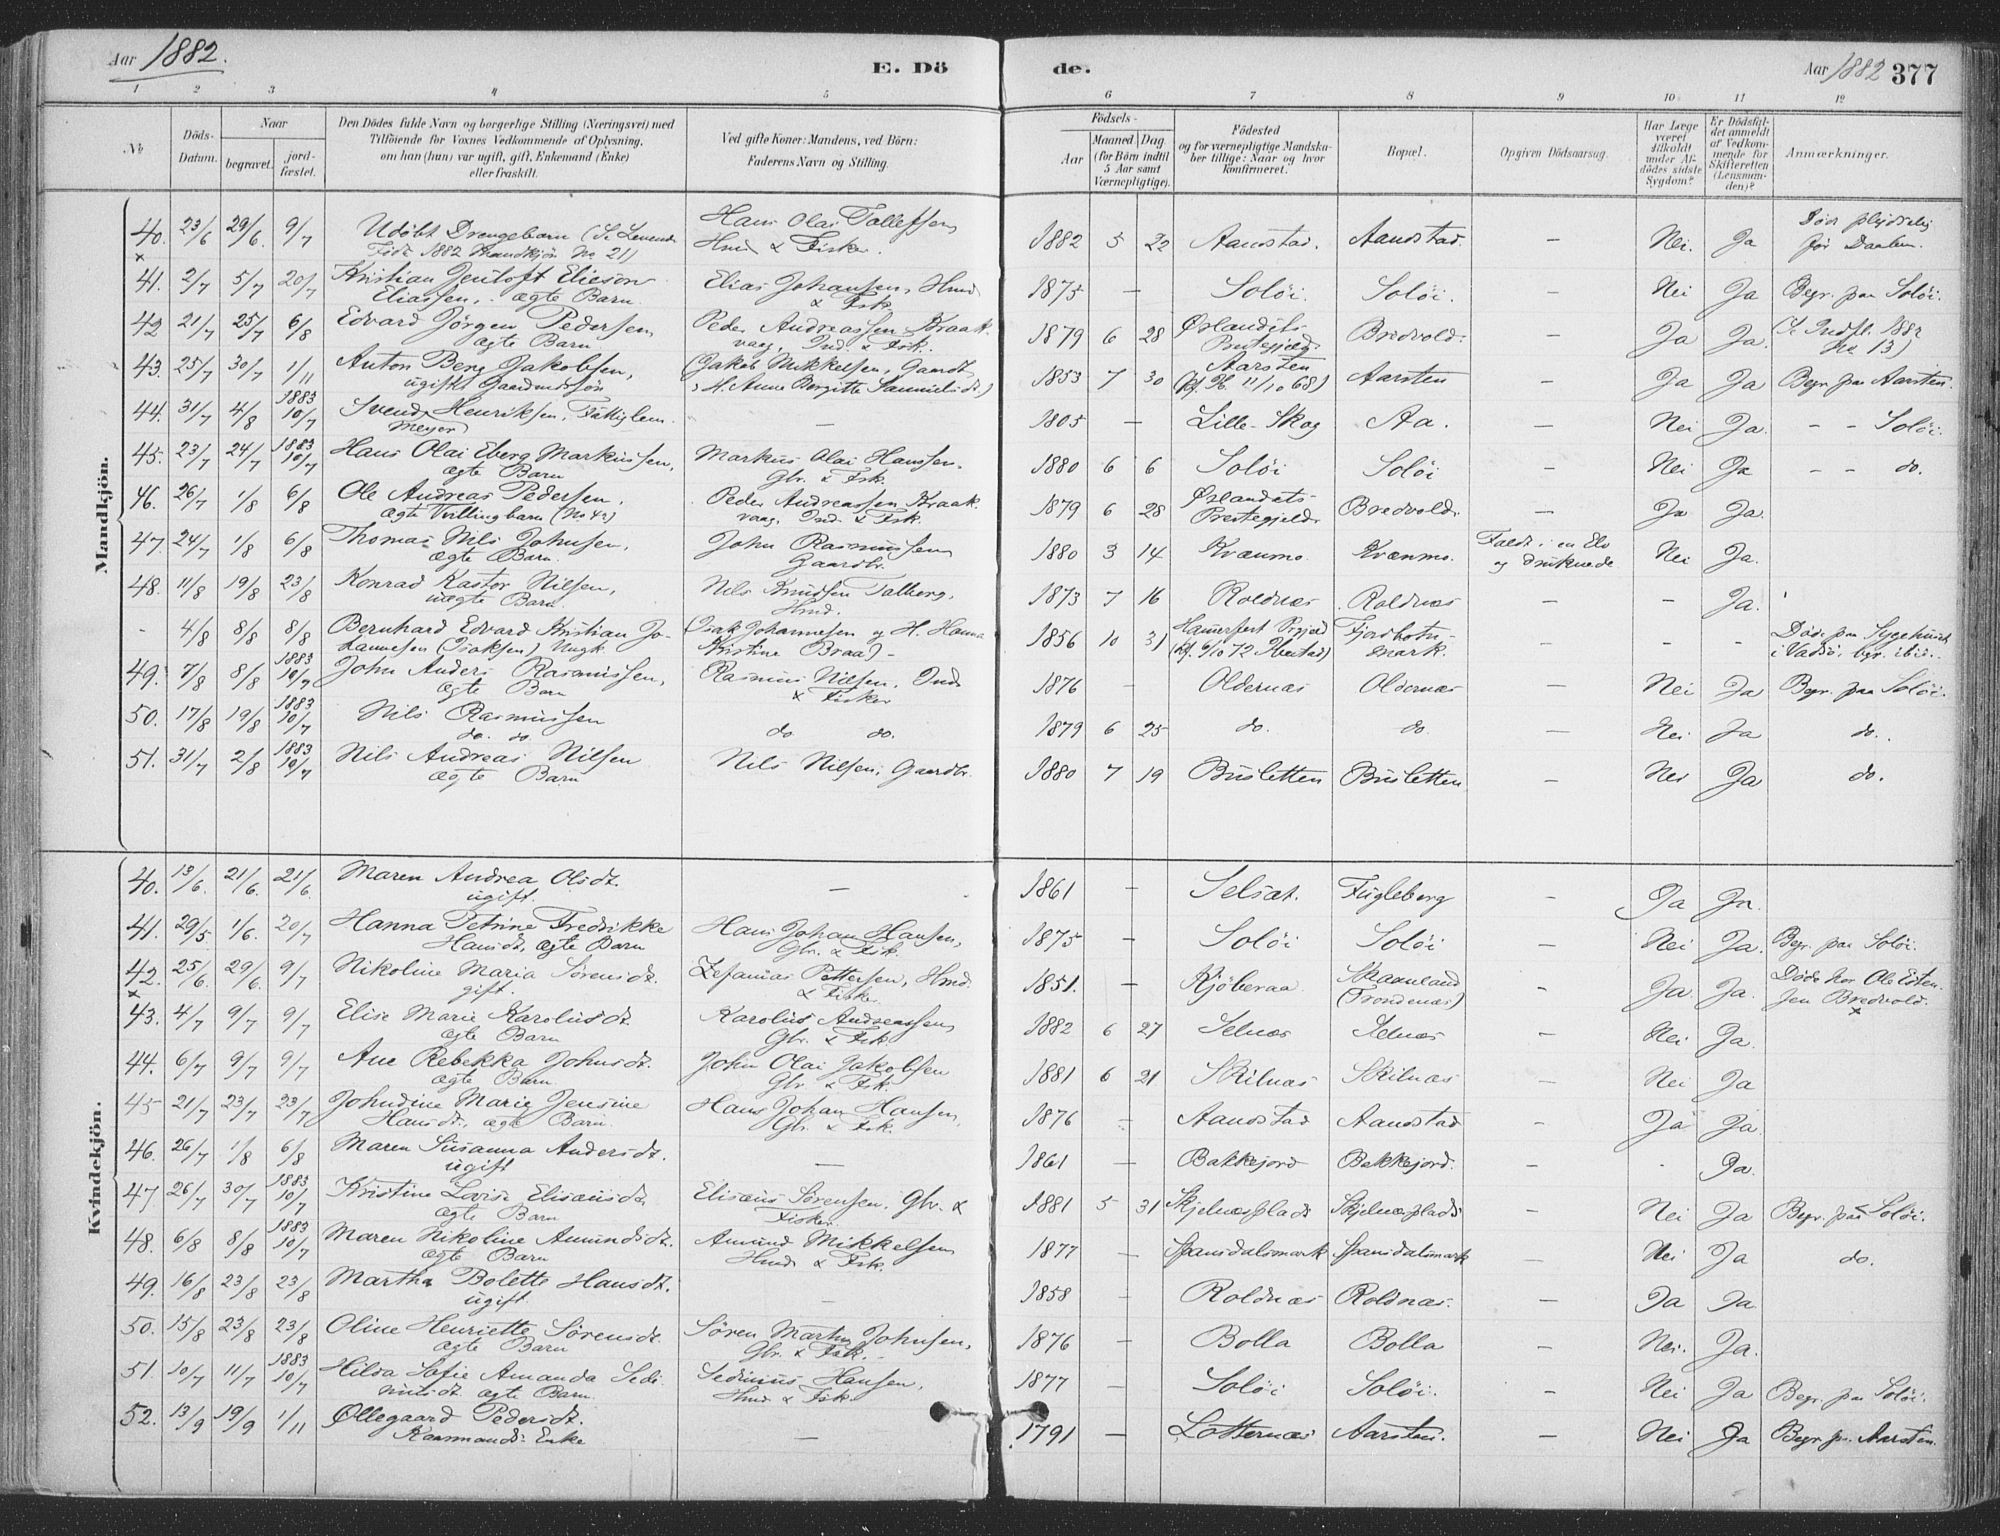 Aar 1882.
E. Dö
de.
Aar 1882 377
1 2 3 4 5 6 7 8 9 10 11 12
No
Döds-Datum.
Naar
begravet.
jord-fæstet.
Den Dödes fulde Navn og borgerlige Stilling (Næringsvei) med
Tilföiende for Voxnes Vedkommende af Oplysning,
om han (hun) var ugift, gift, Enkemand (Enke)
eller fraskilt.
Ved gifte Koner: Mandens, ved Börn:
Faderens Navn og Stilling.
Födsels-
Aar
Maaned Dag
(for Börn indtil
5 Aar samt
Værnepligtige).
Födested
og for værnepligtige Mandska-
ber tillige: Naar og hvor
konfirmeret.
Bopæl.
Opgiven Dödsaarsag.
Har Læge
været
tilkaldt
under Af-
dödes sidste
Sygdom?
Er Dödsfal-
det anmeldt
af Vedkom-
mende for
Skifteretten
(Lensman-
den)?
Anmærkninger.
Mandkjön.
40. 23/6 29/6. 9/7 Udöbt Drengebarn (Se Levende Födt 1882 Mandkjön No 21) Hans Olai Tollefsen Hmd & Fisker. 1882 5 22 Aanstad. Aanstad. — Nei. Ja Död plydselig för Daaben.
41. 2/7 5/7 20/7 Kristian Jentoft Elieson Eliassen, ægte Barn. Elias Johansen, Hmd & Fsk. 1875 — Solöi. Solöi. — Nei Ja Begr. paa Solöi.
42 21/7 25/7 6/8 Edvard Jörgen Pedersen ægte Barn Peder Andreassen Kraakvaag, Ind. & Fsk. 1879 6 28 Ørlandets Prestegjeld. Bredvold. — Ja Ja. (Se Indfl. 1882 No 13)
43. 25/7 30/7 1/11 Anton Berg Jakobsen, ugift Gaardmdssön (Jakob Mikkelsen, Gaardb. & H. Anne Bergitte Samuelsdt.) 1853 7 30 Aarsten (kf. 11/10 68) Aarsten — Ja Ja Begr. paa Aarsten.
44. 31/7 4/8 1883 10/7 Svend Henriksen, Fattiglem. Meyer — 1805 — Lille-Skog Aa. — Nei Ja. - - Solöi.
45. 23/7 24/7 1883 10/7 Hans Olai Eberg Markussen, ægte Barn Markus Olai Hanssen. Gbr. & Fsk. 1880 6 6 Solöi Solöi — Nei Ja - - do.
46. 26/7 1/8 6/8 Ole Andreas Pedersen, ægte Tvillingbarn (No 42) Peder Andreassen Kraakvaag, Ind. & Fsk. 1879 6 28 Ørlandets Prestegjeld Bredvold. — Ja Ja.
47. 24/7 1/8 6/8 Thomas Nils Johnsen, ægte Barn. John Rasmussen Gaardbr. 1880 3 14 Kvænmo. Kvænmo. Faldt i en Elv og druknede Nei Ja.
48. 11/8 19/8 23/8 Konrad Kastor Nilsen, uægte Barn. Nils Knudsen Talberg, Hmd. 1873 7 16 Roldnæs Roldnæs — - Ja.
- 4/8 8/8 8/8 Bernhard Edvard Kristian Johannesen (Isaksen) Ungk. (Isak Johannesen og H. Hanna Kristine Braa) - 1856 10 31 Hamerfest Prgjeld (kf. 6/10 72 Ibestad) Fjordbotnmark. — - - Döde paa Sygehuset i Vadsö, begr. ibid.
49. 7/8 8/8 1883 10/7 John Anders Rasmussen, ægte Barn Rasmus Nilsen, Inds & Fisker 1876 — Oldernæs Oldernæs — Nei Ja Begr. paa Solöi.
50. 17/8 19/8 1883 10/7 Nils Rasmussen do. do. do do. 1879 6 25 do. do. — Nei Ja do.
51. 31/7 2/8 1883 10/7 Nils Andreas Nilsen ægte Barn Nils Nilsen, Gaardbr. 1880 7 19 Busletten Busletten — Nei Ja do.
Kvindekjön.
40. 13/6. 21/6. 21/6. Maren Andrea Olsdt. ugift. — 1861 — Selsæt. Fugleberg — Ja Ja.
41. 29/5 1/6. 20/7 Hanna Petrine Fredrikke Hansdt. ægte Barn Hans Johan Hansen, Gbr. & Fsk. 1875 — Solöi Solöi — Nei Ja. Begr. paa Solöi.
42. 25/6. 29/6. 9/7 Nikoline Maria Sørensdt. gift. Zefanias Pettersen, Hmd. & Fisker. 1851. — Kjöberaa Skaanland (Trondenæs) — Ja Ja. Döde hos Ole Estensen Bredvold.
43. 4/7 9/7 9/7 Elise Marie Karolusdt. ægte Barn Karolus Andreassen Gbr. & Fsk. 1882 6 27 Selnæs Selnæs — Nei Ja.
44. 6/7 9/7 9/7 Ane Rebekka Johnsdt. ægte Barn. John Olai Jakobsen Gbr. & Fsk. 1881 6 21 Skilnæs Skilnæs — Nei Ja
45 21/7 23/7 23/7 Johndine Marie Jensine Hansdt, ægte Barn. Hans Johan Hansen, Gbr. & Fsk. 1876 — Aanstad Aanstad — Ja Ja.
46. 26/7 1/8 6/8 Maren Susanna Andersdt. ugift — 1861 — Bakkejord Bakkejord. — - Ja.
47. 26/7 30/7 1883 10/7 Kristine Lovise Elisæusdt. ægte Barn Elisæus Sörensen. Gbr. & Fisker. 1881 5 31 Skjelnæsplads Skjelnæsplads — Nei Ja Begr. paa Solöi.
48. 6/8 8/8 1883 10/7 Maren Nikoline Amundsdt. ægte Barn Amund Mikkelsen Hmd & Fsk. 1877 — Spansdalsmark Spansdalsmark — Nei Ja do.
49. 16/8 23/8 23/8 Martha Bolette Hansdt. ugift. — 1858 — Roldnæs Roldnæs. — Ja Ja.
50. 15/8 23/8 23/8 Oline Henriette Sørensdt. ægte Barn Sören Martin Johnsen, Gbr. & Fsk. 1876 — Bolla Bolla — Nei. Ja.
51. 10/7 11/7 1883 10/7 Hilda Sofie Amanda Sediniusdt. ægte Barn. Sedinius Hansen, Hmd & Fsk. 1877 — Solöi Solöi. — Nei Ja Begr. paa Solöi.
52. 13/9 19/9 1/11 Øllegaard Pedersdt. Kaarmands Enke — 1791 — Lotternæs Aarsten. — Nei Ja Begr. paa Aarsten.